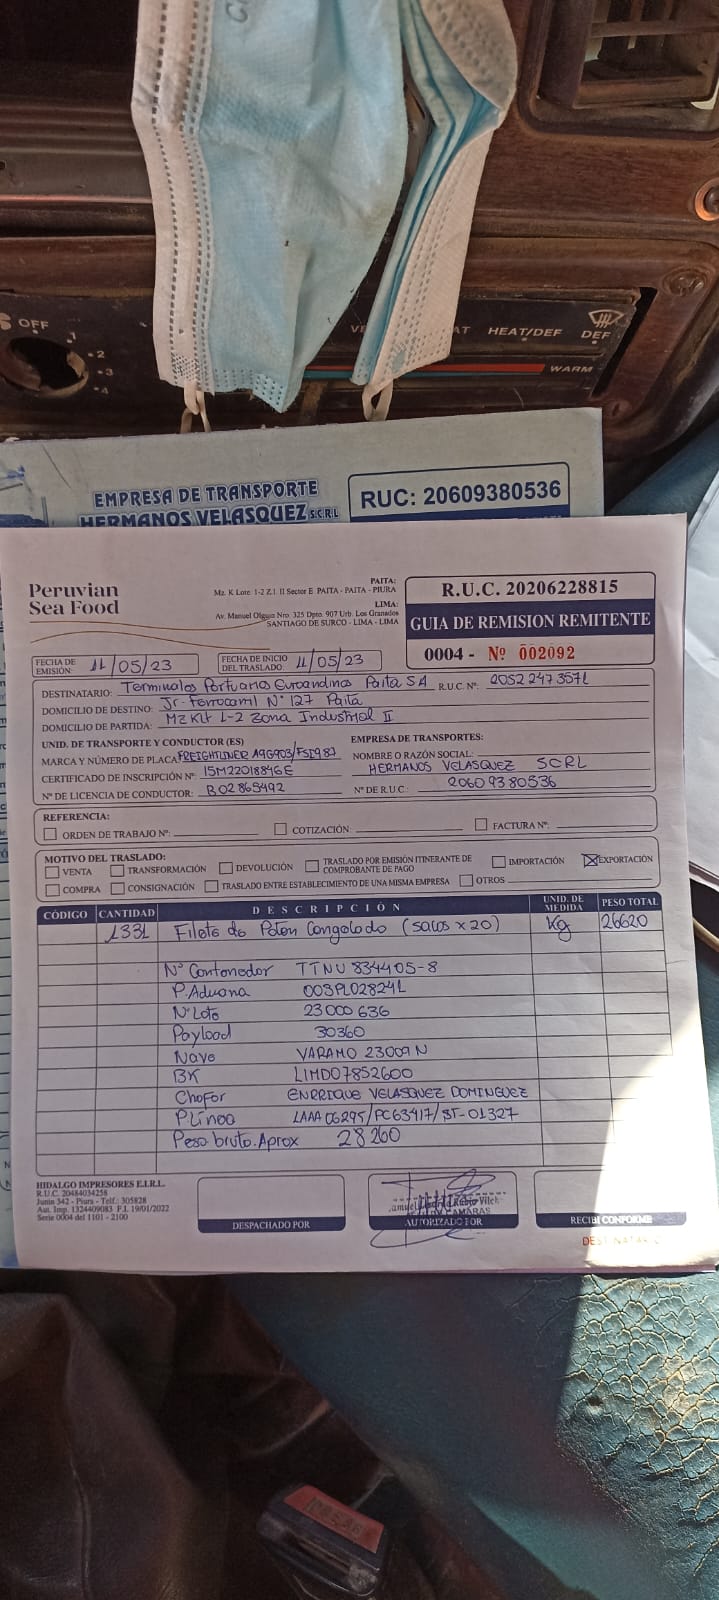 OFF
1
2
3
4
HEAT/DEF
DEF
WARM
EMPRESA DE TRANSPORTE
HERMANOS VELASQUEZ S.C.R.L
RUC: 20609380536
Peruvian
Sea Food
PAITA:
Mz. K Lote 1-2 Z.I. II Sector E PAITA - PAITA - PIURA
LIMA:
Av. Manuel Olguin Nro. 325 Dpto. 907 Urb. Los Granados
SANTIAGO DE SURCO - LIMA - LIMA
R.U.C. 20206228815
GUIA DE REMISION REMITENTE
0004 - Nº 002092
FECHA DE EMISIÓN: 11/05/23
FECHA DE INICIO DEL TRASLADO: 11/05/23
DESTINATARIO: Terminales Portuarios Euroandinos Paita SA R.U.C. Nº: 20522473571
DOMICILIO DE DESTINO: Jr. Ferrocarril N° 127 Paita
DOMICILIO DE PARTIDA: MZ K Lt 1-2 Zona Industrial II
UNID. DE TRANSPORTE Y CONDUCTOR (ES)
EMPRESA DE TRANSPORTES:
MARCA Y NÚMERO DE PLACA: FREIGHTLINER A9G903/FSI987
NOMBRE O RAZÓN SOCIAL:
HERMANOS VELASQUEZ SCRL
CERTIFICADO DE INSCRIPCIÓN Nº 15M22018846E
Nº DE LICENCIA DE CONDUCTOR: B02865492
Nº DE R.U.C: 20609380536
REFERENCIA:
ORDEN DE TRABAJO Nº:
COTIZACIÓN:
FACTURA Nº:
MOTIVO DEL TRASLADO:
VENTA
TRANSFORMACIÓN
DEVOLUCIÓN
TRASLADO POR EMISIÓN ITINERANTE DE COMPROBANTE DE PAGO
IMPORTACIÓN
EXPORTACIÓN
COMPRA
CONSIGNACIÓN
TRASLADO ENTRE ESTABLECIMIENTO DE UNA MISMA EMPRESA
OTROS
CÓDIGO CANTIDAD DESCRIPCIÓN UNID. DE MEDIDA PESO TOTAL
1331 Filete de Poton Congelado (sacos x 20) Kg 26620
N° Contenedor TTNU 834405-8
P. Aduana 003PL02824L
N° Lote 23000636
Payload 30360
Nave VARAMO 23009N
BK LIMD07852600
Chofer ENRRIQUE VELASQUEZ DOMINGUEZ
P. Linea LAAA06295/PC63417/ST-01327
Peso bruto. Aprox 28260
HIDALGO IMPRESORES E.I.R.L.
R.U.C. 20484034258
Junin 342 - Piura - Telf.: 305828
Aut. Imp. 1324409083 F.I. 19/01/2022
Serie 0004 del 1101 - 2100
DESPACHADO POR
AUTORIZADO POR
RECIBI CONFORME
DESTINATARIO